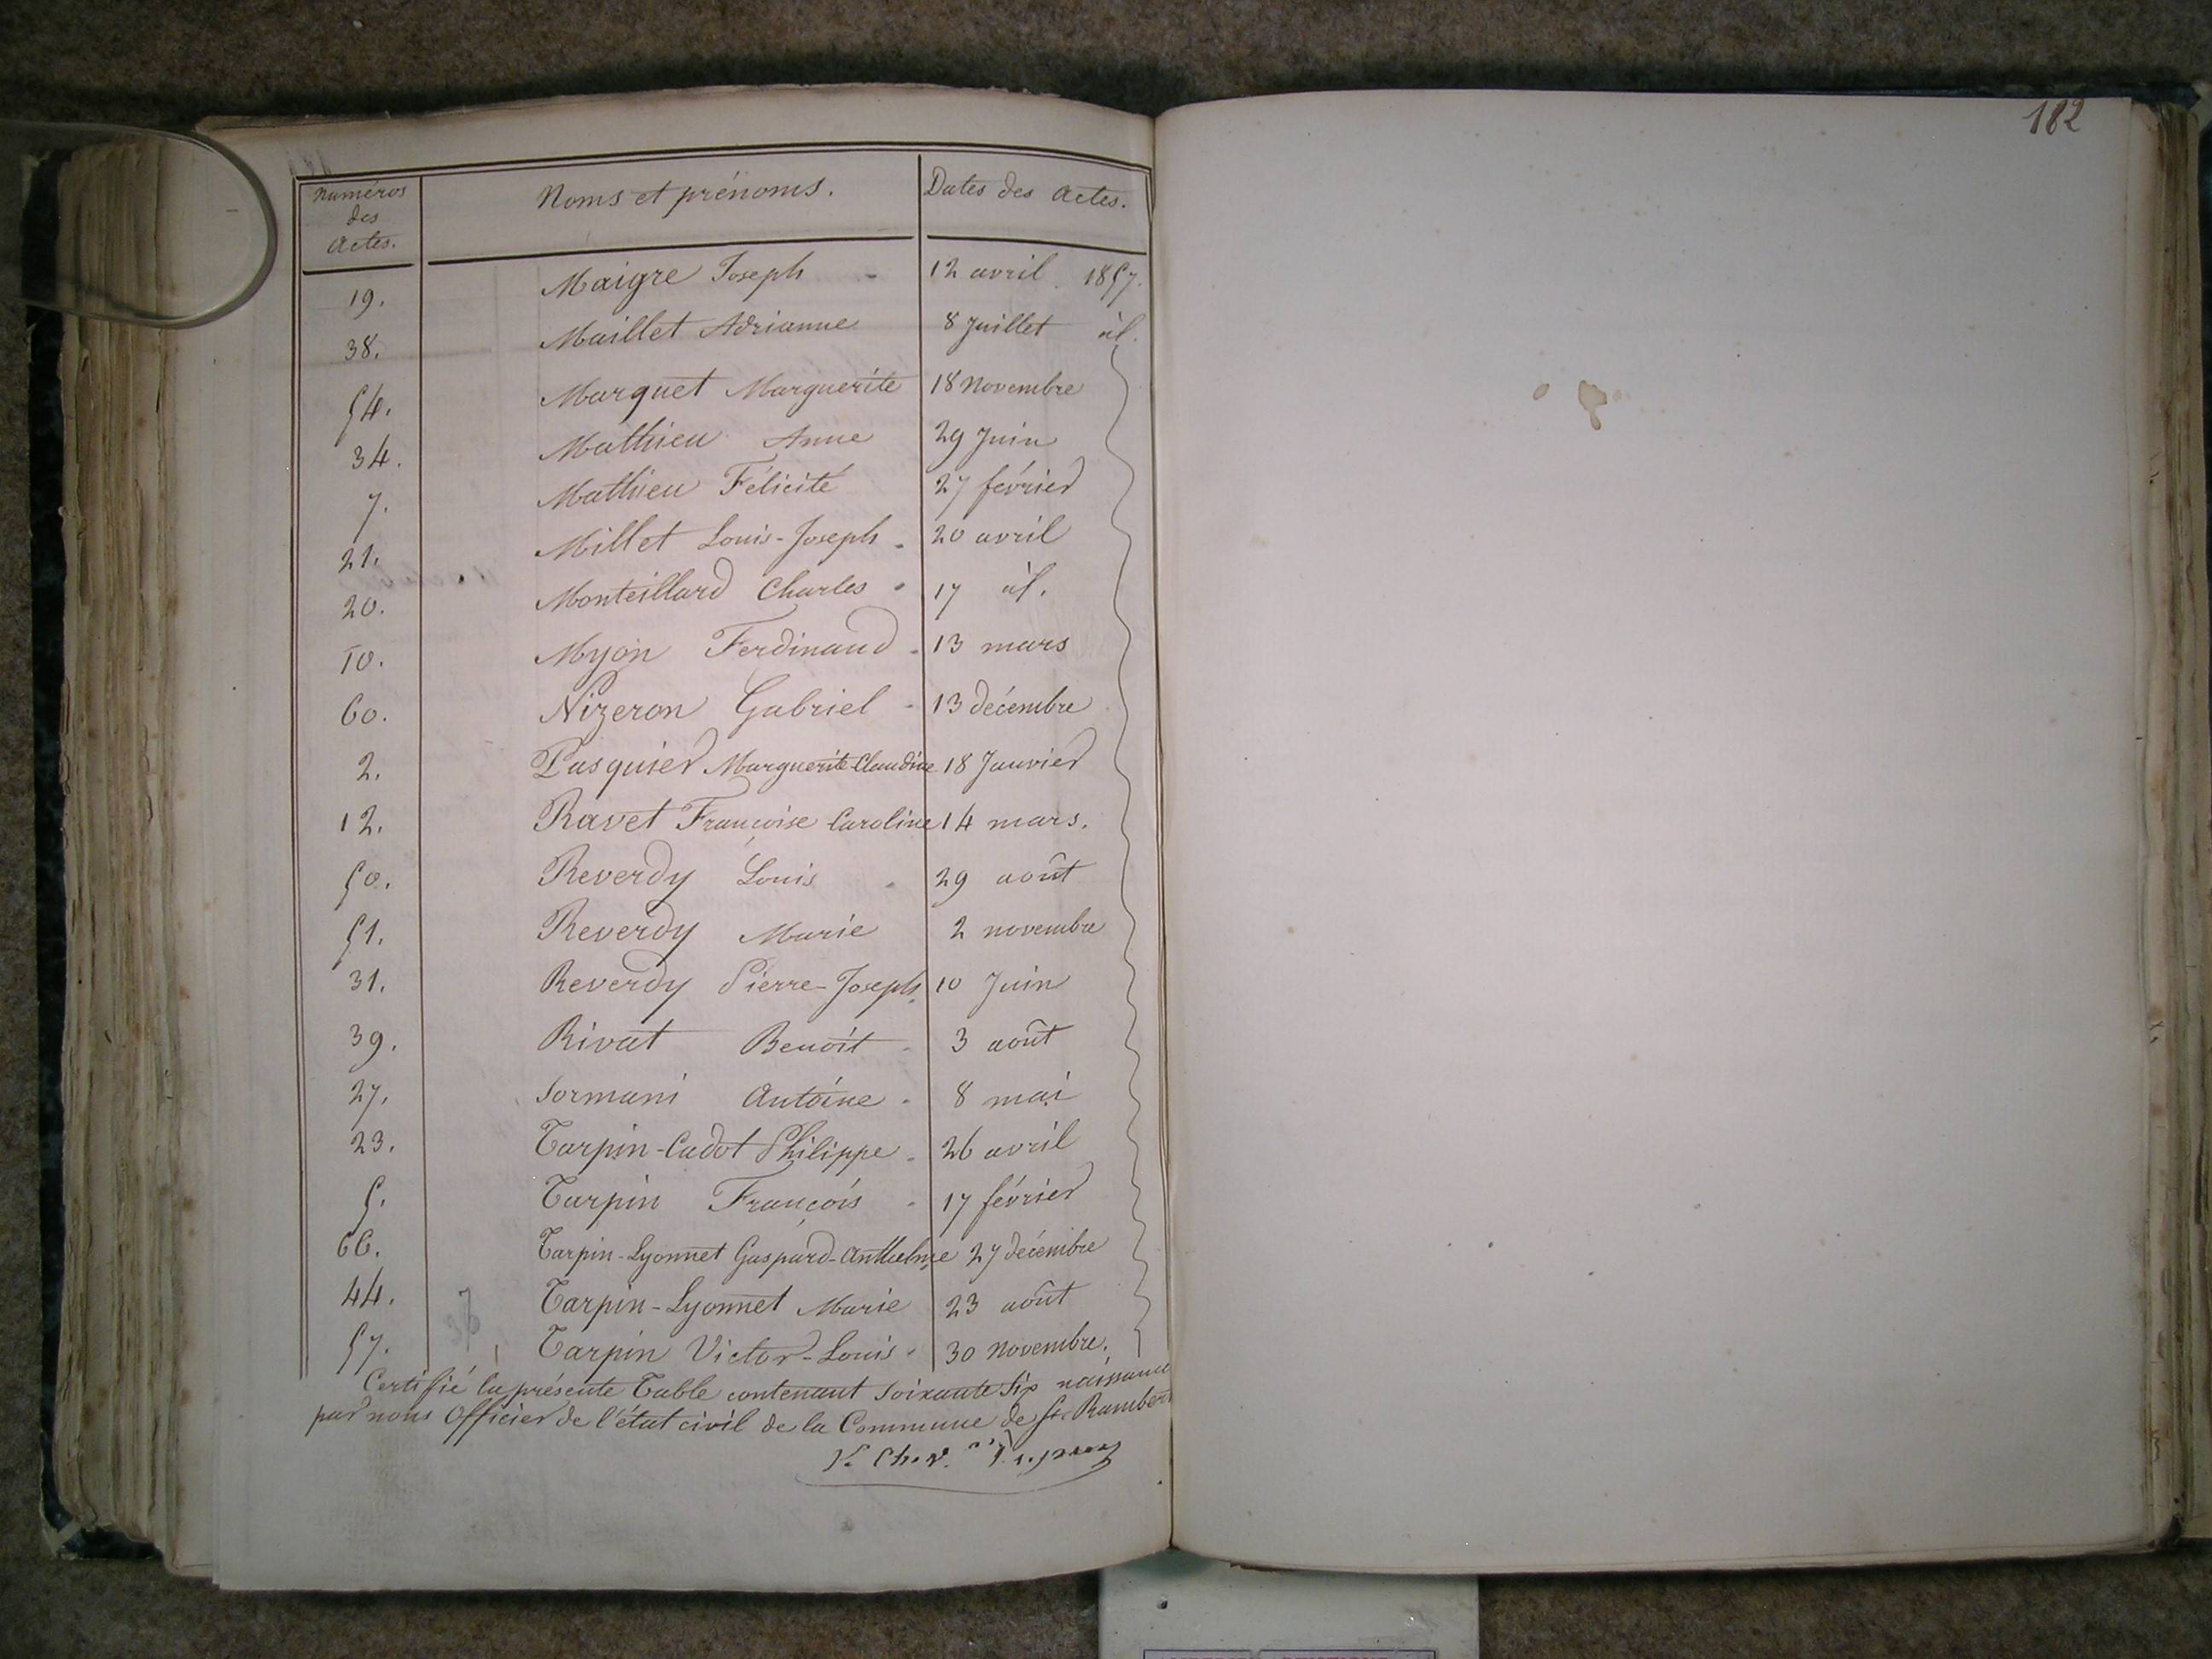 182
Numéros des Actes. Noms et prénoms. Dates des Actes.
19. Maigre Joseph - 12 avril 1857.
38. Maillet Adrianne 8 Juillet id.
54. Marguet Marguerite 18 Novembre
34. Mathieu Anne 29 Juin
7. Mathieu Félicité 27 février
21. Millet Louis-Joseph - 20 avril
20. Monteillard Charles - 17 id.
10. Myon Ferdinand - 13 mars
60. Nizeron Gabriel - 13 décembre
2. Pasquier Marguerite Claudine 18 Janvier
12. Ravet Françoise Caroline 14 mars.
50. Reverdy Louis - 29 août
51. Reverdy Marie 2 novembre
31. Reverdy Pierre-Joseph. 10 Juin
39. Rivat Benoît - 3 août
27. Sormani Antoine - 8 mai
23. Tarpin-Cadot Philippe - 26 avril
5. Tarpin François - 17 février
66. Tarpin-Lyonnet Gaspard-Anthelme 27 décembre
44. Tarpin-Lyonnet Marie 23 août
57. Tarpin Victor-Louis - 30 Novembre.
Certifié la présente Table contenant soixante six naissance
par nous Officier de l'état civil de la Commune de St. Rambert